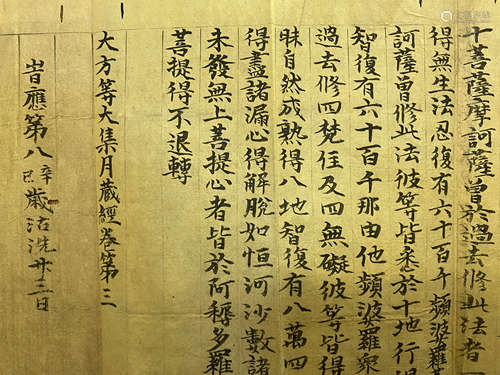 十菩薩摩訶薩曾於過去修此法者
得無生法忍復有六十百千頻婆羅菩
訶薩曾修此法彼等皆悉於十地行
智復有六十百千那由他頻婆羅衆
過去修四梵住及四無礙彼等皆得
昧自然成熟得八地智復有八萬四
得盡諸漏心得解脫如恒河沙數諸
未發無上菩提心者皆於阿耨多羅
菩提得不退轉
大方等大集月藏經卷第三
昔應第八辛巳歲沽洗廿三日